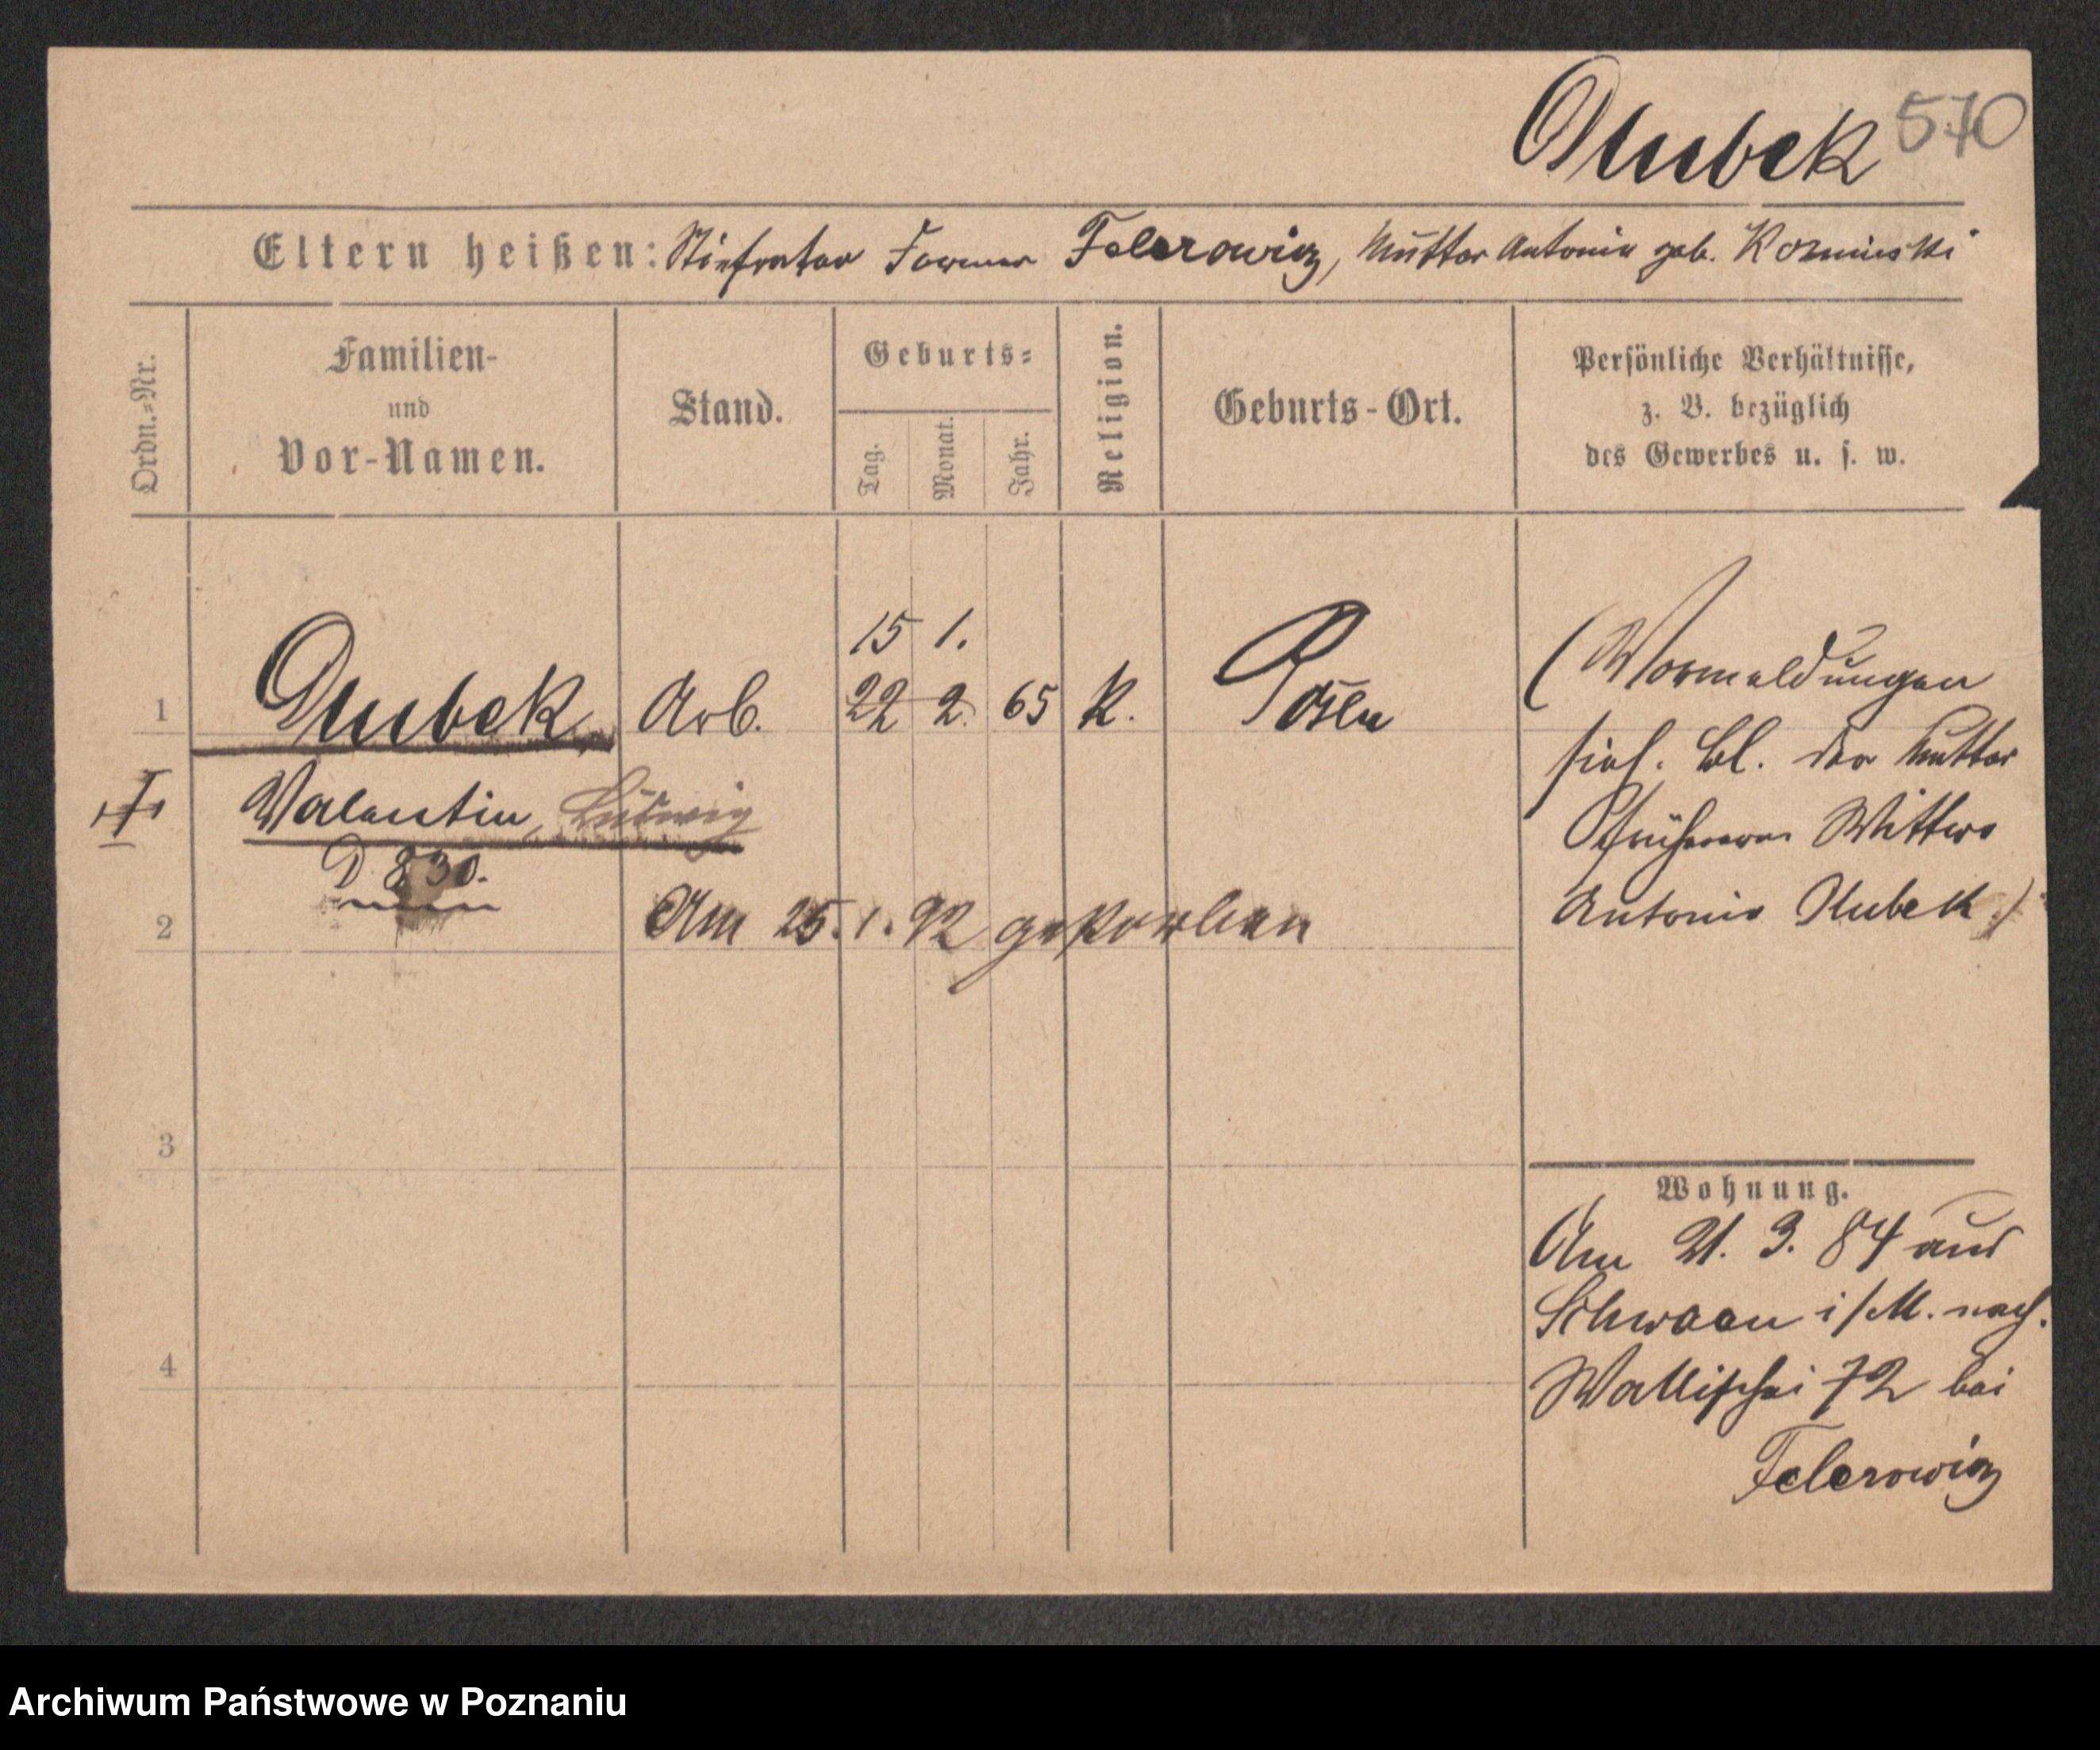 Dlubek 570
Eltern heißen: Stiefvater Former Felerowicz, Mutter Antonie geb. Kozminski
Ordn.=Nr.
Familien-
und
Vor-Namen.
Stand.
Geburts=
Tag.
Monat.
Jahr.
Religion.
Geburts-Ort.
Persönliche Verhältnisse,
z. B. bezüglich
des Gewerbes u. s. w.
15 1.
1 Dlubek, Arb. 22 2. 65 K. Posen
Valentin, Ludwig
D 830.
2 Am 25.1.92 gestorben
3
4
(Vormeldungen
sieh. Bl. der Mutter
früheren Wittwe
Antonie Dlubek.)
Wohnung.
Am 21. 3. 84 aus
Schwaan i/M. nach.
Wallischei 72 bei
Felerowicz
Archiwum Państwowe w Poznaniu